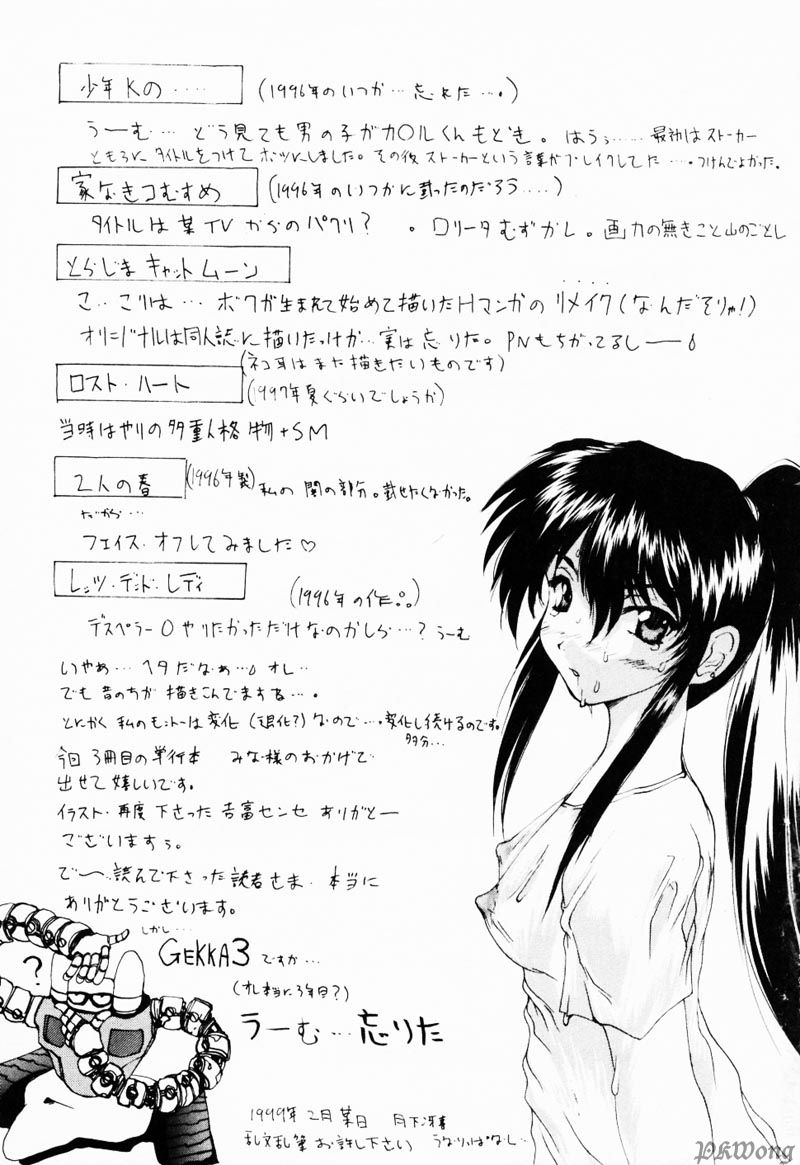 少年Kの‥‥
(1996年のいつか…忘れた…。)
うーむ… どう見ても男の子がカ〇ルくんもどき。はうぅ…… 最初はストーカー
ともろにタイトルをつけてボツにしました。その後ストーカーという言葉がブレイクしてた…。つけんでよかった。
家なきコむすめ
(1996年のいつかに載ったのだろう‥‥)
タイトルは某TVからのパクリ? 。ロリータむずかし。画力の無きこと山のごとし
とらじまキャットムーン
こ‥こりは…ボクが生まれて始めて描いたHマンガのリメイク(なんだそりゃ!)
オリジナルは同人誌に描いたっけか…実は忘りた。PNもちがってるしー
(ネコ耳はまた描きたいものです)
ロスト・ハート
(1997年夏ぐらいでしょうか)
当時はやりの多重人格物+SM
2人の春
(1996年製)
私の闇の部分。載せたくなかった。
だから…
フェイス・オフしてみました♡
レッツ・デンド・レディ
(1996年の作。。)
デスペラー〇やりたかっただけなのかしら…?うーむ
いやぁ…ヘタだなぁ… オレ…
でも昔のちが描きこんでますね…。
とにかく私のモットーは変化(退化?)なので…。変化し続けるのです。
多分…
今回3冊目の単行本 みな様のおかげで
出せて嬉しいです。
イラスト・再度下さった吉富センセ ありがとー
ございますぅ。
で〜、読んで下さった読者さま・本当に
ありがとうございます。
しかし…
GEKKA3ですか…
(オレ本当に3年目?)
うーむ…忘りた
?
1999年2月某日 月下冴喜
乱文乱筆お許し下さい うなりっぱなし…
PKWong